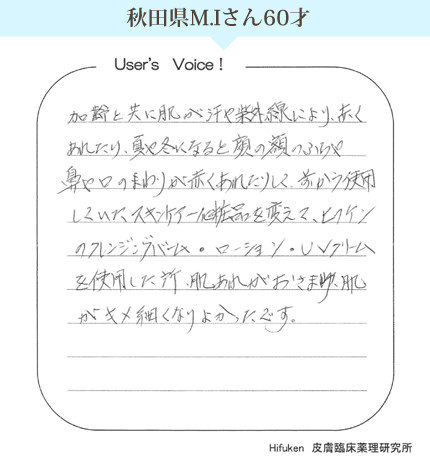 秋田県M.Iさん60才
User's Voice！
加齢と共に肌が汗や紫外線により、赤く
あれたり、夏や冬になると顔の額のふちや
鼻や口のまわりが赤くあれたりして、前から使用
していた、スキンケアー化粧品を変えて、ヒフケン
のクレンジングバーム・ローション・UVクリーム
を使用した所、肌あれがおさまり、肌
がキメ細くなりよかったです。
Hifuken 皮膚臨床薬理研究所